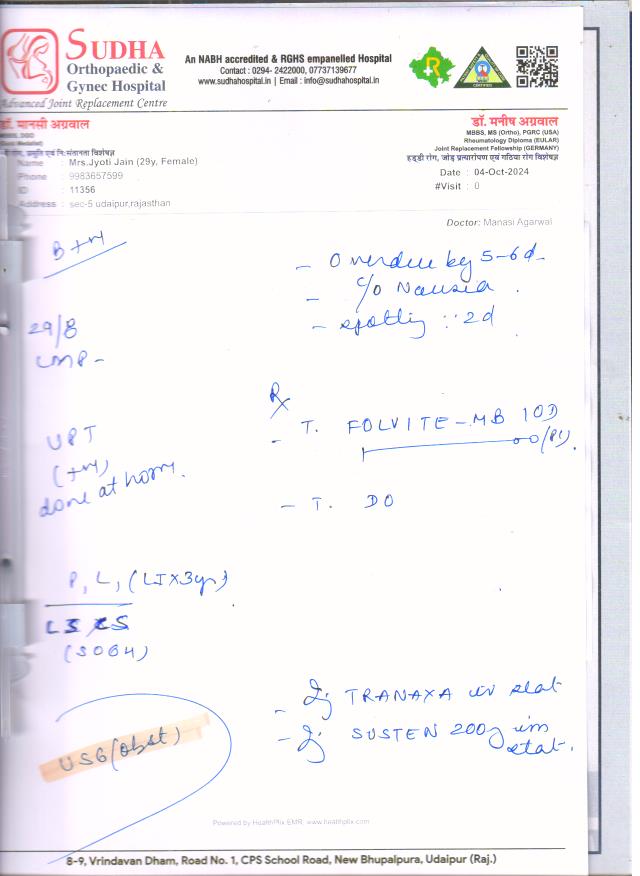 SUDHA
Orthopaedic &
Gynec Hospital
Advanced Joint Replacement Centre
An NABH accredited & RGHS empanelled Hospital
Contact : 0294- 2422000, 07737139677
www.sudhahospital.in | Email : info@sudhahospital.in
R
डॉ. मानसी अग्रवाल
रोग, प्रसूति एवं निःसंतानता विशेषज्ञ
डॉ. मनीष अग्रवाल
MBBS, MS (Ortho), PGRC (USA)
Rheumatology Diploma (EULAR)
Joint Replacement Fellowship (GERMANY)
हड्डी रोग, जोड़ प्रत्यारोपण एवं गठिया रोग विशेषज्ञ
Name : Mrs.Jyoti Jain (29y, Female)
Phone : 9983657599
ID : 11356
Address : sec-5 udaipur,rajasthan
Date : 04-Oct-2024
#Visit : 0
Doctor: Manasi Agarwal
B +ve
- Overdue by 5-6d
- c/o Nausea
- spotting :: 2d
29/8
LMP -
Rx
- T. FOLVITE-MB 1OD
UPT
(+ve)
done at home.
- T. DO
P1 L1 (LI x 3yr)
LSCS
- Inj TRANAXA iv stat
- Inj SUSTEN 200 im
stat.
USG (obst)
Powered by HealthPlix EMR. www.healthplix.com
8-9, Vrindavan Dham, Road No. 1, CPS School Road, New Bhupalpura, Udaipur (Raj.)